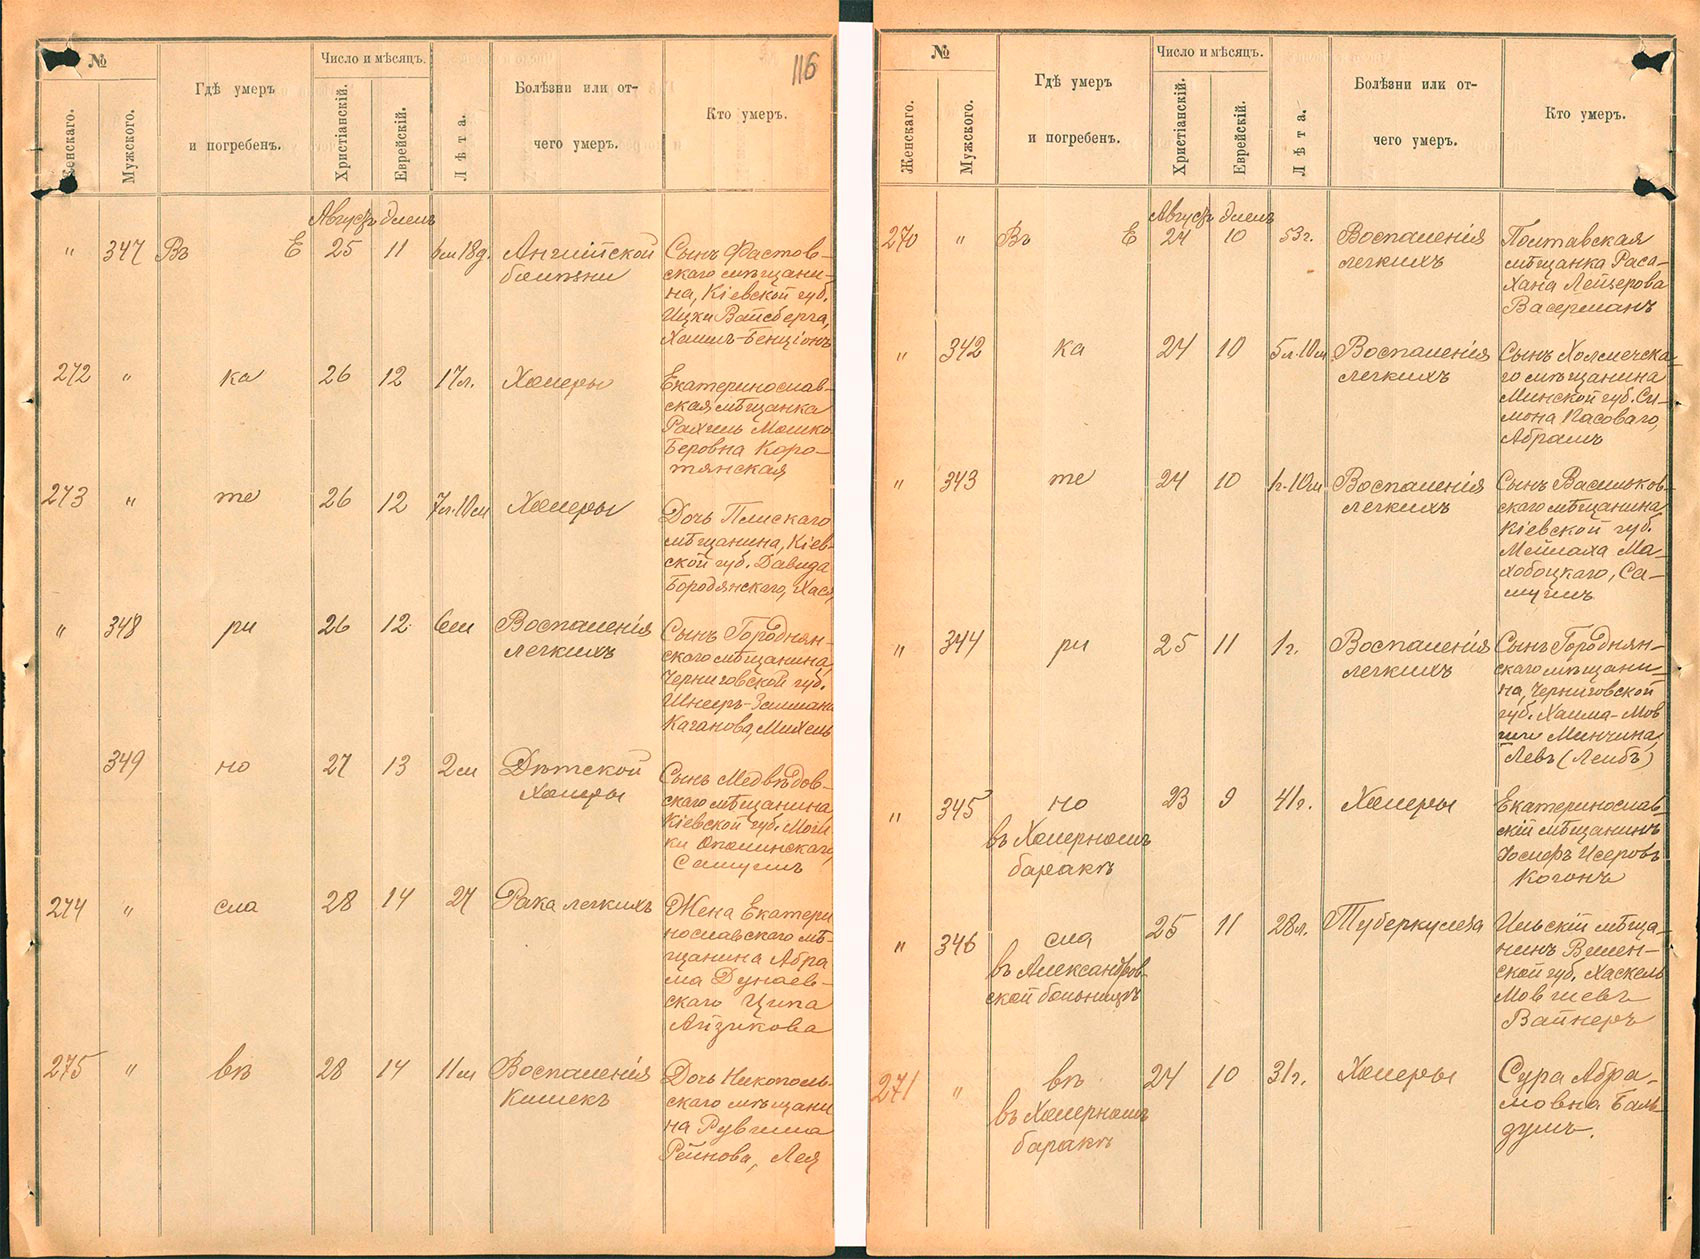 116
№
Женскаго.
Мужского.
Гдѣ умеръ
и погребенъ.
Число и мѣсяцъ.
Христіанскій.
Еврейскій.
Лѣта.
Болѣзни или от-
чего умеръ.
Кто умеръ.
Августъ
" 347 Въ Е 25 11 18д. Англійской
болѣзни
Сынъ Фастов-
скаго мѣщани-
на, Кіевской губ.
Ицки Вайсберга,
Хаимъ-Бенціонъ
272 " ка 26 12 17л. Холеры
Екатеринослав-
ская мѣщанка
Рахиль Мошко
Беровна Коро-
тянская
273 " те 26 12 7л.10м Холеры
Дочь
мѣщанина, Кіев-
ской губ. Давида
Бородянскаго, Хася
" 348 ри 26 12 6м Воспаленія
легкихъ
Сынъ Городнян-
скаго мѣщанина,
Черниговской губ.
Шнеиръ-Залмана
Каганова, Михель
349 но 27 13 2м Дѣтской
Холеры
Сынъ Медвѣдов-
скаго мѣщанина,
Кіевской губ.
Самуилъ
274 " сла 28 14 27 Рака легкихъ
Жена Екатери
нославскаго мѣ-
щанина Абра
ма Дунаев-
скаго Ципа
Айзикова
275 " вѣ 28 14 11м Воспаленія
Кишекъ
Дочь Никополь-
скаго мѣщани
на Рувима
Рейнова, Лея
№
Женскаго.
Мужского.
Гдѣ умеръ
и погребенъ.
Число и мѣсяцъ.
Христіанскій.
Еврейскій.
Лѣта.
Болѣзни или от-
чего умеръ.
Кто умеръ.
Августъ
270 " Въ Е 24 10 53г. Воспаленія
легкихъ
Полтавская
мѣщанка Раса-
Хана Лейзерова
Васерманъ
" 342 ка 24 10 5л.10м Воспаленія
легкихъ
Сынъ Холмечска-
го мѣщанина
Минской губ. Си-
мона Пасоваго,
Абрамъ
" 343 те 24 10 1г.10м Воспаленія
легкихъ
Сынъ Васильков-
скаго мѣщанина
Кіевской губ.
Мейлаха Ма-
хобоцкаго, Са-
муилъ
" 344 ри 25 11 1г. Воспаленія
легкихъ
Сынъ Городнян-
скаго мѣщани-
на, Черниговской
губ. Хаима-Мов
Минчина,
Левъ (Лейбъ)
" 345 но 23 9 41г. Холеры
въ Холерномъ
баракѣ
Екатеринослав-
скій мѣщанинъ
Іосифъ Исеровъ
Когонъ
" 346 сла 25 11 28л. Туберкулеза
въ Александров-
ской больницѣ
Ильскій мѣща-
нинъ Вилен-
ской губ. Хаскель
Мовшевъ
Вайнеръ
271 " вѣ 24 10 31г. Холеры
въ Холерномъ
баракѣ
Сура Абра-
мовна Баль-
думъ.